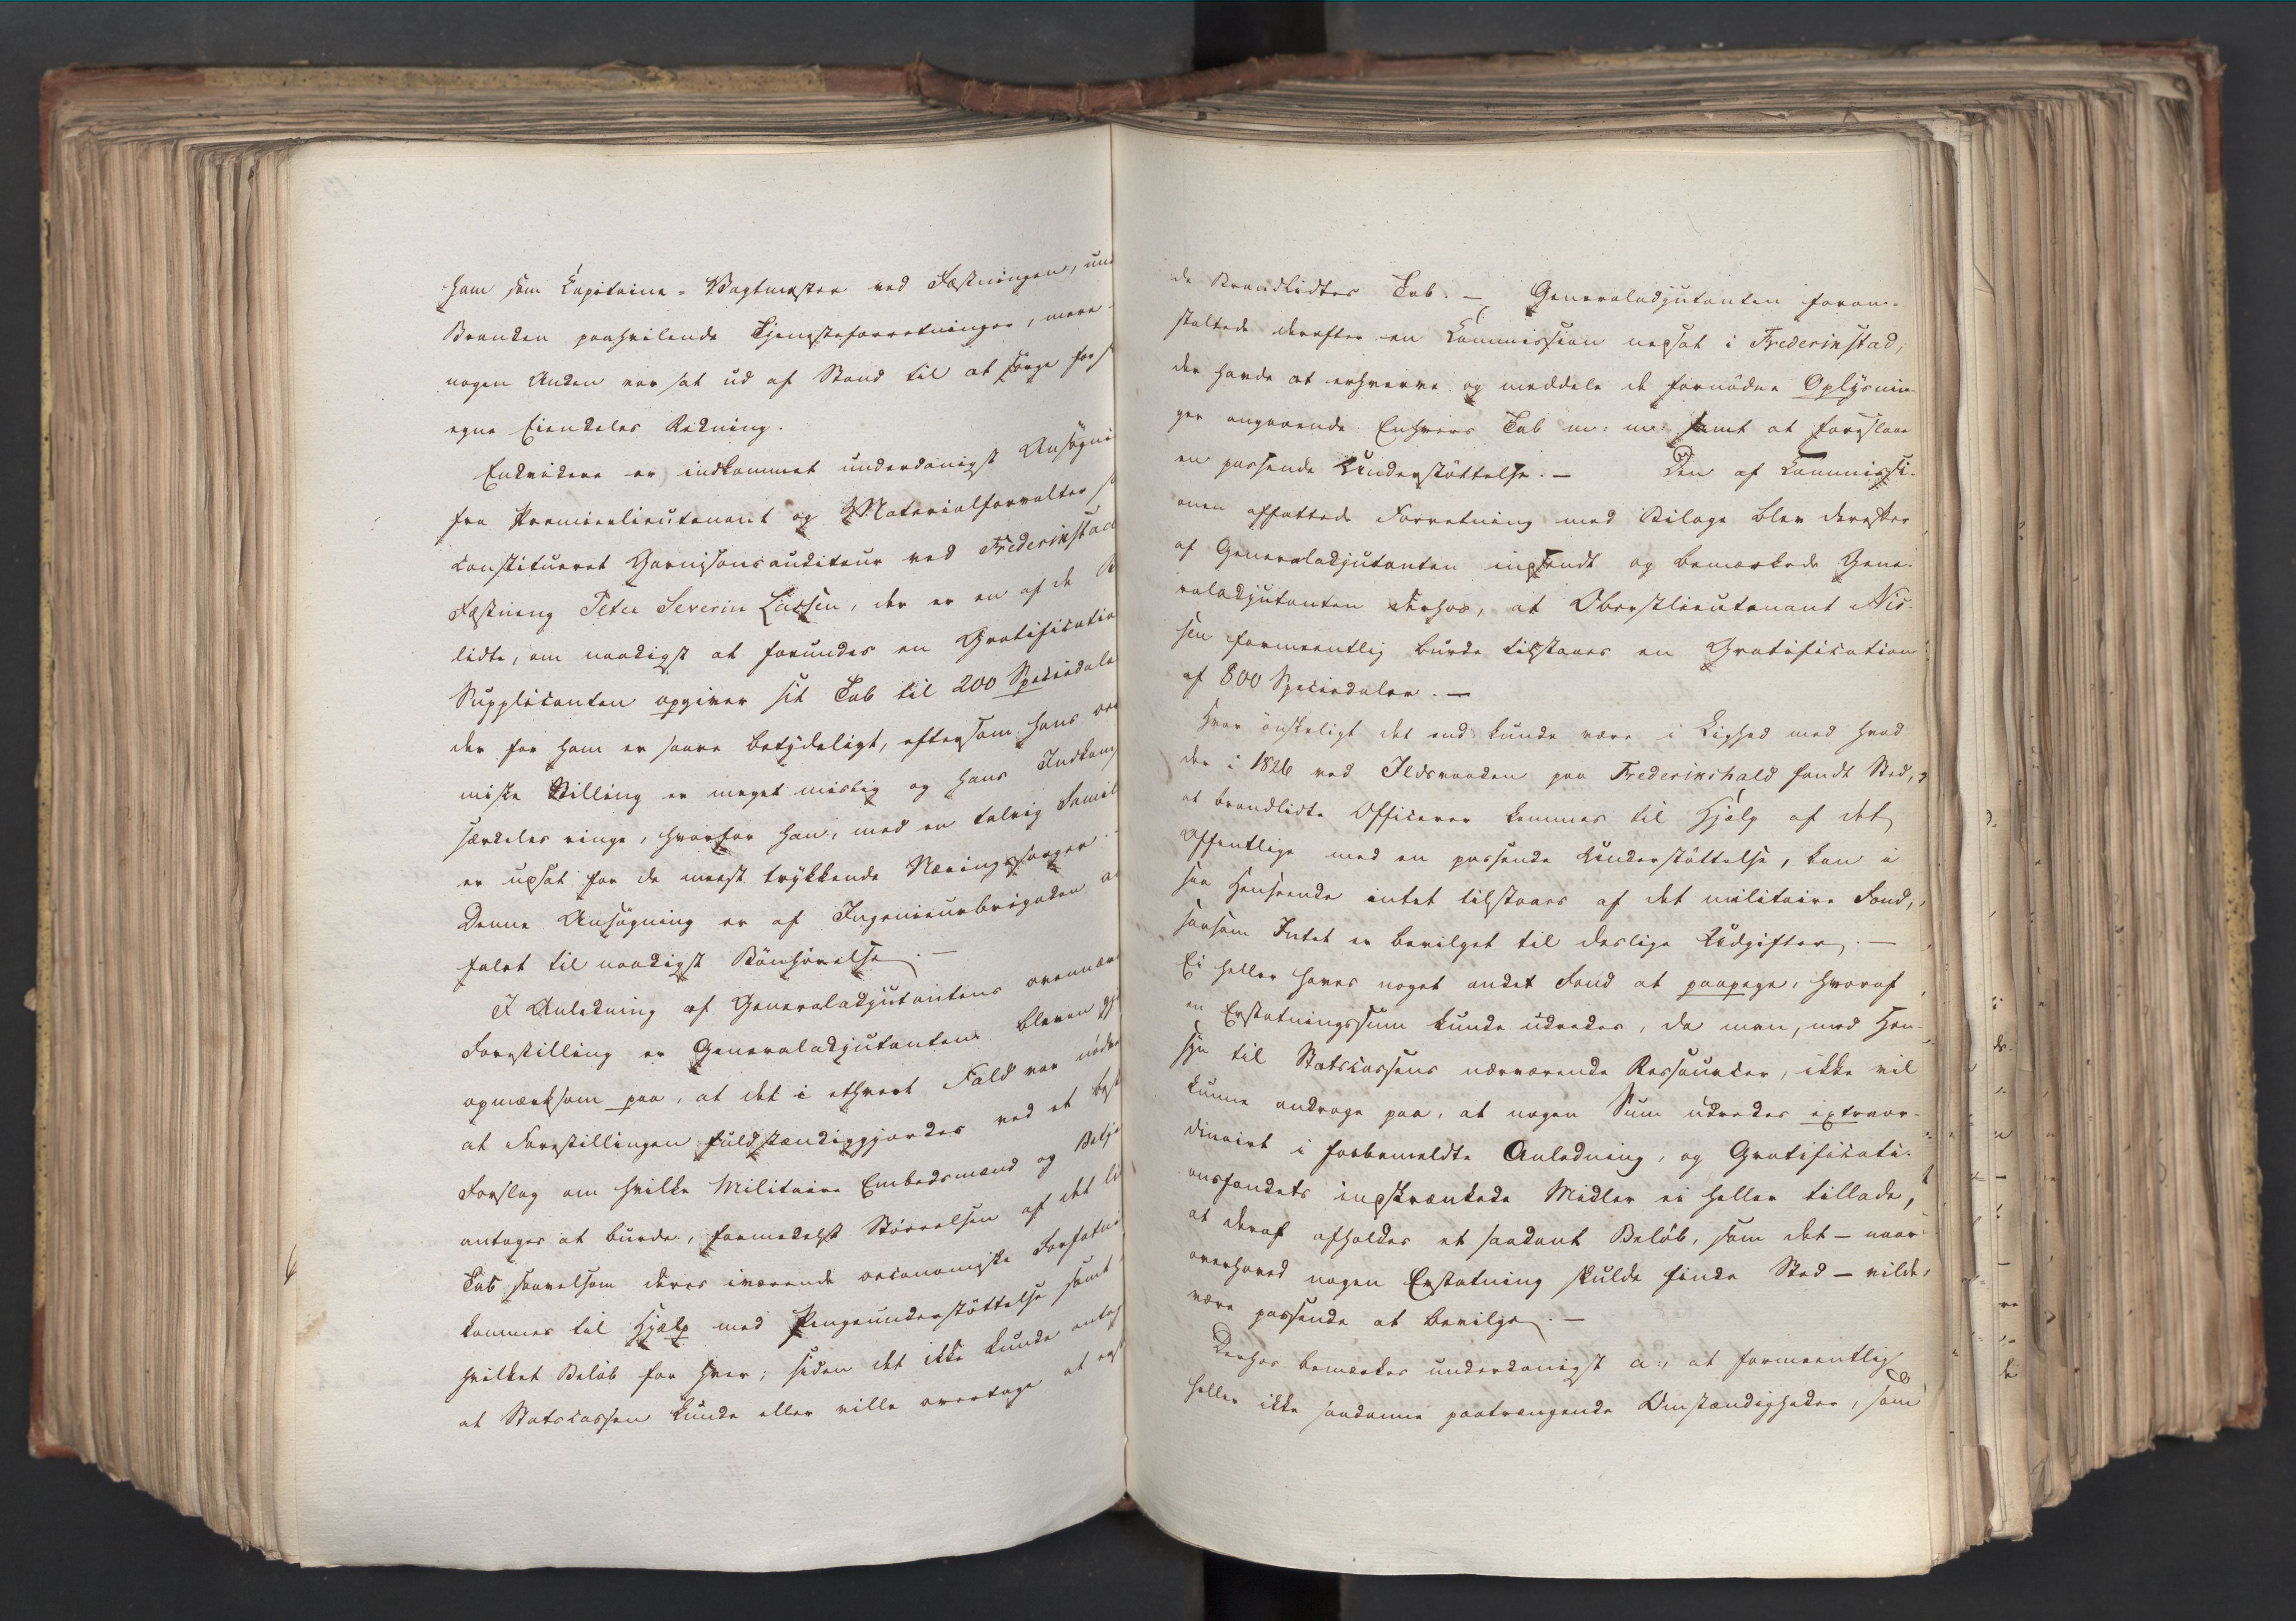 ham som Capitaine-Vagtmester ved Fæstningen, und
Branden paahvilende Tjenesteforretninger, mere
nogen Anden var sat ud af Stand til at sørge for s
egne Eiendeles Redning.
Endvidere er indkommet underdanigst Ansøgni
fra Premierlieutenant og Materialforvalter s
constitueret Garnisonsauditeur ved Frederikstad
Fæstning Peter Severin Lassen, der er en af de B
lidte, om naadigst at forundes en Gratificatio
Supplicanten opgiver sit Tab til 200 Speciedale
der for ham er saare betydeligt, eftersom hans oec
miske Stilling er meget mislig og hans Indkoms
særdeles ringe, hvorfor han, med en talrig Famil
er udsat for de meest trykkende Næringssorger.
Denne Ansøgning er af Ingenieurbrigaden an
falet til naadigst Bønhørelse. —
I Anledning af Generaladjutantens ovennævn
Forestilling er Generaladjutanten bleven gjo
opmærksom paa, at det i ethvert Fald var nødve
at Forestillingen fuldstændiggjordes ved et best
Forslag om hvilke Militaire Embedsmænd og Betje
antages at burde, formedelst Størrelsen af det li
Tab saavelsom deres iværende oeconomiske Forfatni
kommes til Hjælp med Pengeunderstøttelse samt
hvilket Beløb for hver; siden det ikke kunde antag
at Statscassen kunde eller ville overtage at erst
de Brandlidtes Tab. — Generaladjutanten foran-
staltede derefter en Commission nedsat i Frederikstad,
der havde at erhverve og meddele de fornødne Oplysnin-
ger angaaende Enhvers Tab m: m: samt at foreslaae
en passende Understøttelse. — Den af Commissi-
onen affattede Forretning med Bilage blev derefter
af Generaladjutanten indsendt og bemærkede Gene-
raladjutanten derhos, at Oberstlieutenant Nis-
sen formeentlig burde tilstaaes en Gratification
af 800 Speciedaler. —
Hvor ønskeligt det end kunde være i Lighed med hvad
der i 1826 ved Ildsvaaden paa Frederikshald fandt Sted,
at brandlidte Officerer kommes til Hjælp af det
Offentlige med en passende Understøttelse, kan i
saa Henseende intet tilstaaes af det militaire Fond,
saasom Intet er bevilget til deslige Udgifter. —
Ei heller haves noget andet Fond at paapege, hvoraf
en Erstatningssum kunde udredes, da man, med Hen-
syn til Statscassens nærværende Ressourcer, ikke vil
kunne andrage paa, at nogen Sum udredes extraor-
dinairt i forbemeldte Anledning, og Gratificati-
onsfondets indskrænkede Midler ei heller tillade,
at deraf afholdes et saadant Beløb, som det — naar
overhoved nogen Erstatning skulde finde Sted — vilde
være passende at bevilge. —
Derhos bemærkes underdanigst a:, at formeentlig
heller ikke saadanne paatrængende Omstændigheder, som